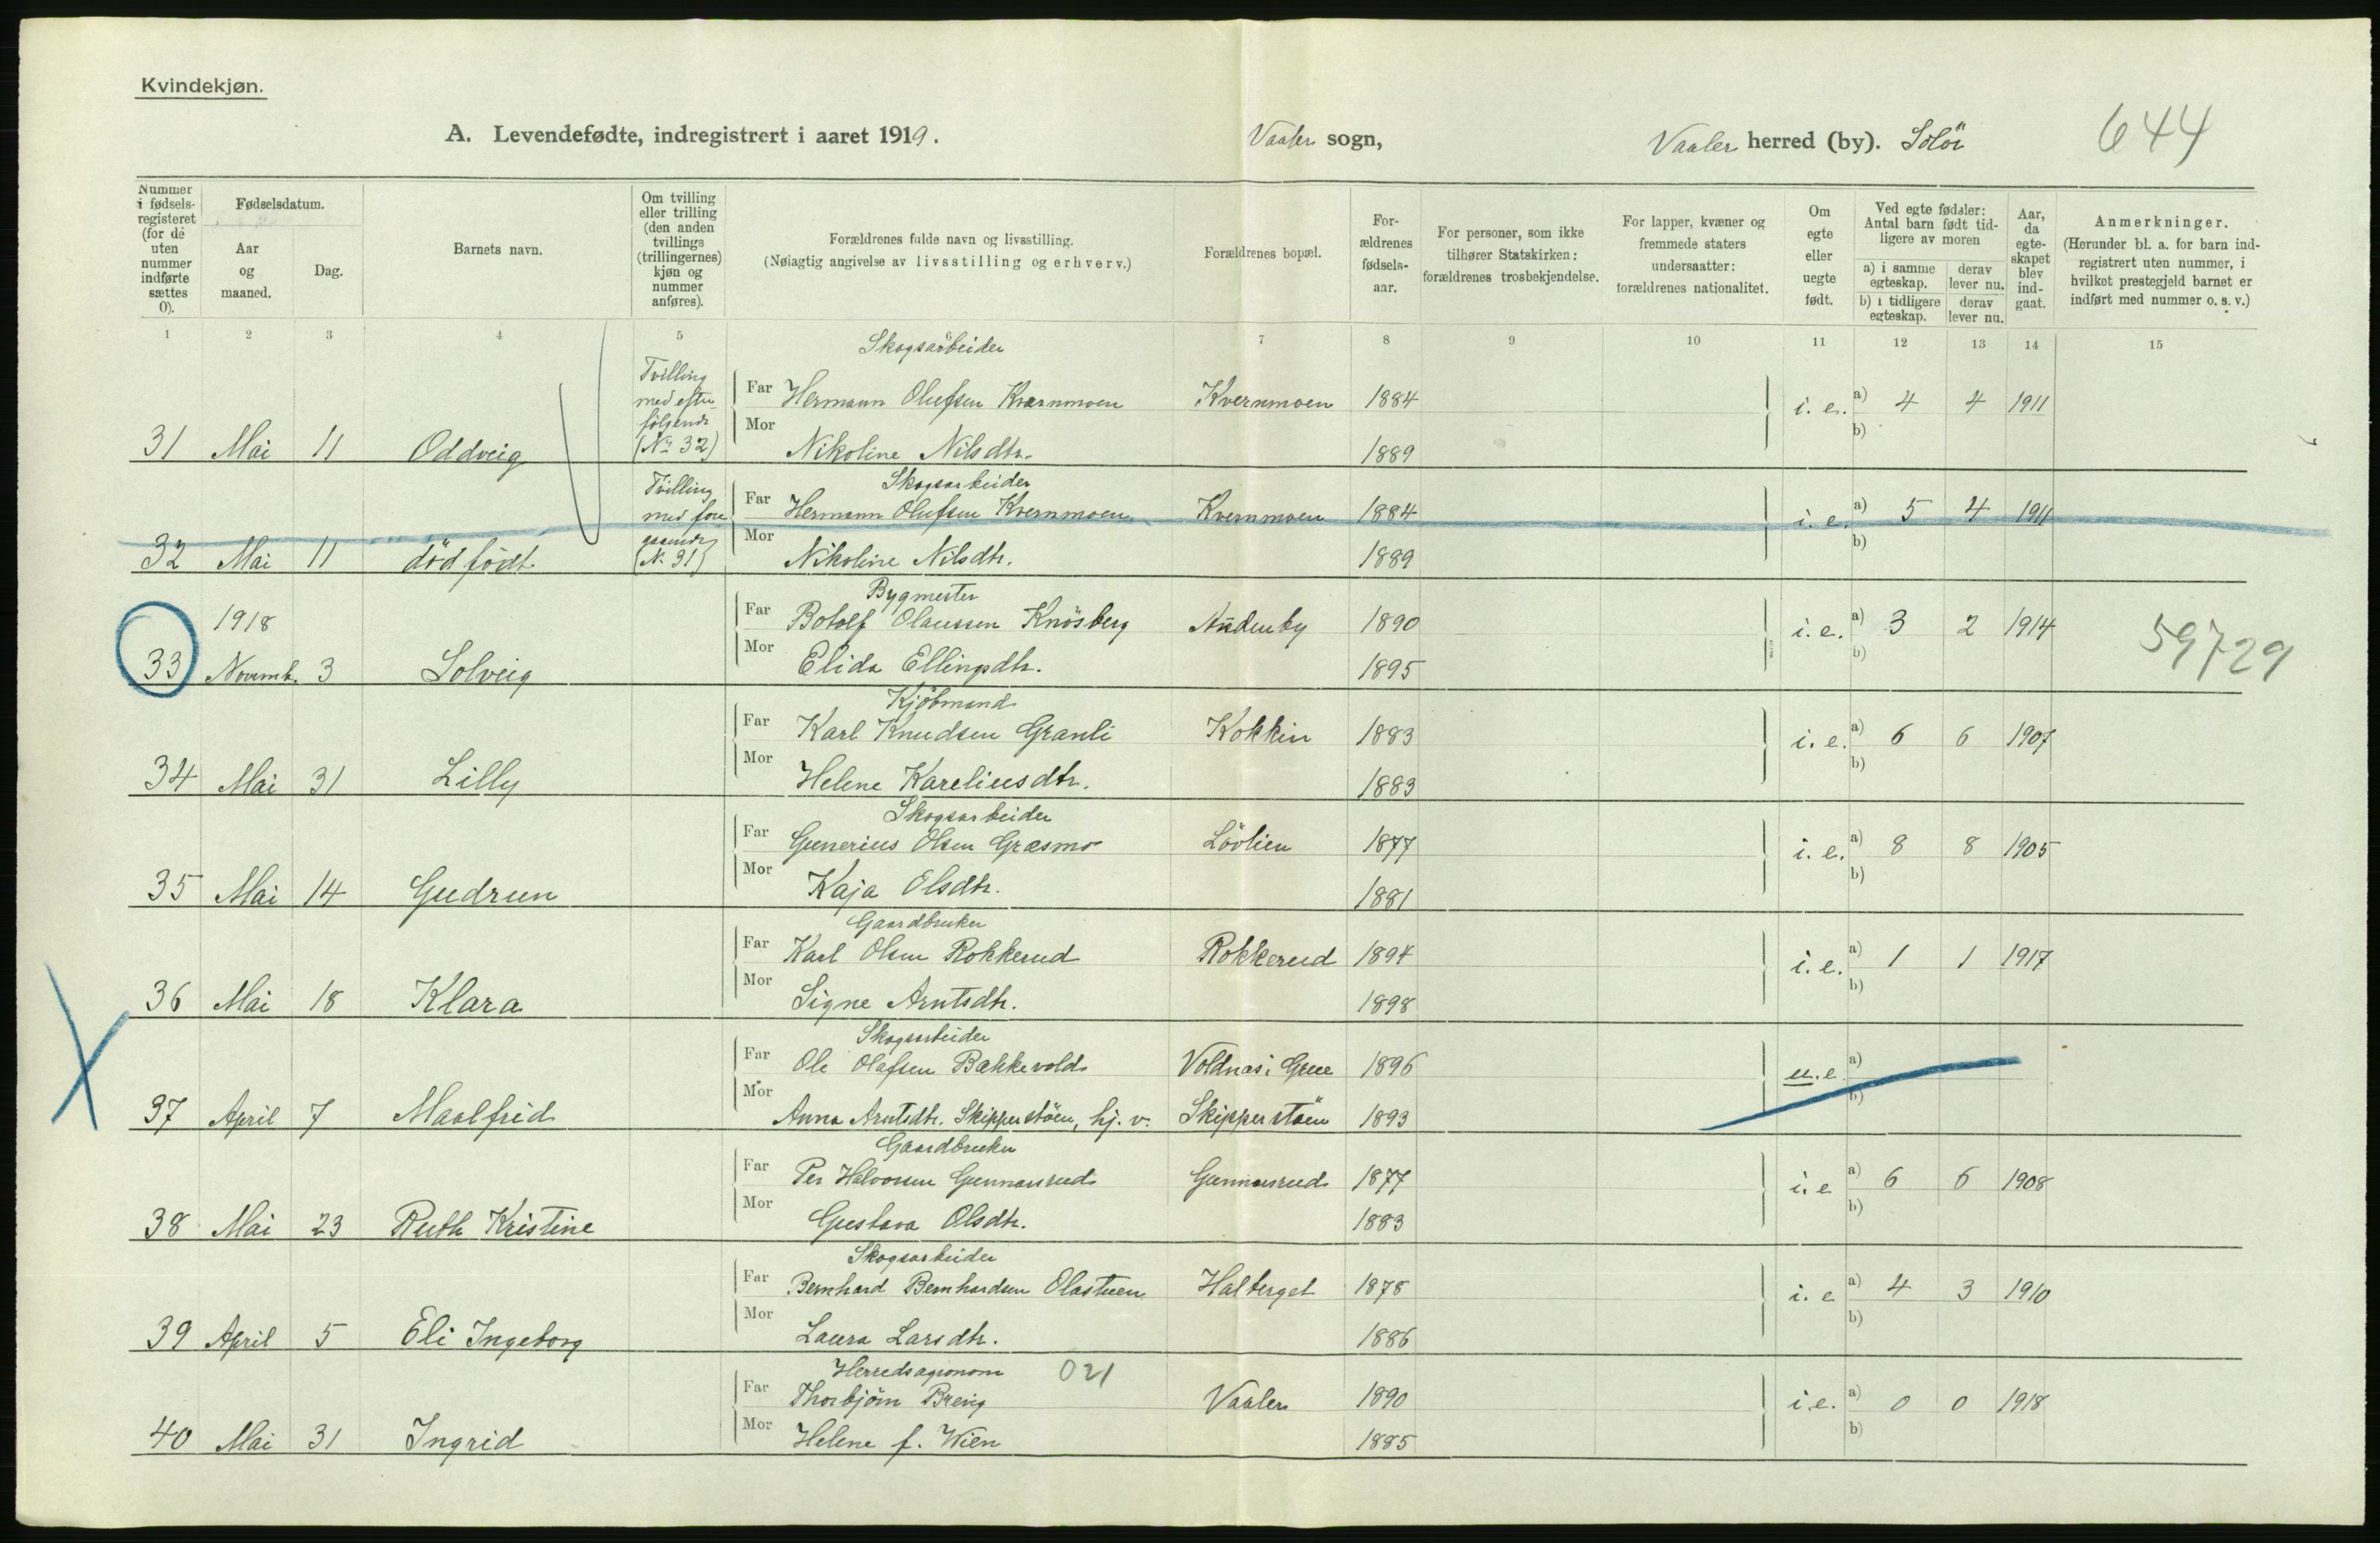 Kvindekjøn.
A. Levendefødte, indregistrert i aaret 1919. Vaaler sogn, Vaaler herred (by). Solör 644
Nummer i fødsels-registeret (for de uten nummer indførte sættes 0).
Fødselsdatum.
Aar og maaned.
Dag.
Barnets navn.
Om tvilling eller trilling (den anden tvillings (trillingernes) kjøn og nummer anføres).
Forældrenes fulde navn og livsstilling.
(Nøiagtig angivelse av livsstilling og erhverv.)
Forældrenes bopæl.
For-ældrenes fødsels-aar.
For personer, som ikke tilhører Statskirken: forældrenes trosbekjendelse.
For lapper, kvæner og fremmede staters undersaatter: forældrenes nationalitet.
Om egte eller uegte født.
Ved egte fødsler: Antal barn født tid-ligere av moren
a) i samme egteskap. derav lever nu.
b) i tidligere egteskap. derav lever nu.
Aar, da egte-skapet blev ind-gaat.
Anmerkninger.
(Herunder bl. a. for barn ind-registrert uten nummer, i hvilket prestegjeld barnet er indført med nummer o. s. v.)
1 2 3 4 5 6 7 8 9 10 11 12 13 14 15
Skogsarbeider
Tvilling med efterfølgende (No 32)
Far Hermann Olufsen Kvernmoen Kvernmoen 1884 i. e. a) 4 4 1911
b)
31 Mai 11 Oddveig Mor Nikoline Nilsdtr. 1889
Skogsarbeider
Tvilling med foregaaende (N. 31)
Far Hermann Olufsen Kvernmoen Kvernmoen 1884 i. e. a) 5 4 1911
b)
32 Mai 11 dödfödt Mor Nikoline Nilsdtr. 1889
Bygmester
1918 Far Botolf Olaussen Knösberg Audenby 1890 i. e. a) 3 2 1914 59729
b)
33 Novemb. 3 Solveig Mor Elida Ellingsdtr. 1895
Kjöbmand
Far Karl Knudsen Granli Kokkin 1883 i. e. a) 6 6 1907
b)
34 Mai 31 Lilly Mor Helene Kareliusdtr. 1883
Skogsarbeider
Far Gunerius Olsen Græsmo Lövlien 1877 i. e. a) 8 8 1905
b)
35 Mai 14 Gudrun Mor Kaja Olsdtr. 1881
Gaardbruker
Far Karl Olsen Rokkerud Rokkerud 1894 i. e. a) 1 1 1917
b)
36 Mai 18 Klara Mor Signe Arntsdtr. 1898
Skogsarbeider
Far Ole Olafsen Bakkevold Voldnæs i Grue 1896 u. e. a)
b)
37 April 7 Maalfrid Mor Anna Arntsdtr. Skipperstöen, hj. v. Skipperstöen 1893
Gaardbruker
Far Per Halvorsen Gunnarsrud Gunnarsrud 1877 i. e a) 6 6 1908
b)
38 Mai 23 Ruth Kristine Mor Gustava Olsdtr. 1883
Skogsarbeider
Far Bernhard Bernhardsen Olastuen Halberget 1878 i. e a) 4 3 1910
b)
39 April 5 Eli Ingeborg Mor Laura Larsdtr. 1886
Herredsagronom 021
Far Thorbjörn Breig Vaaler 1890 i. e. a) 0 0 1918
b)
40 Mai 31 Ingrid Mor Helene f. Wien 1885